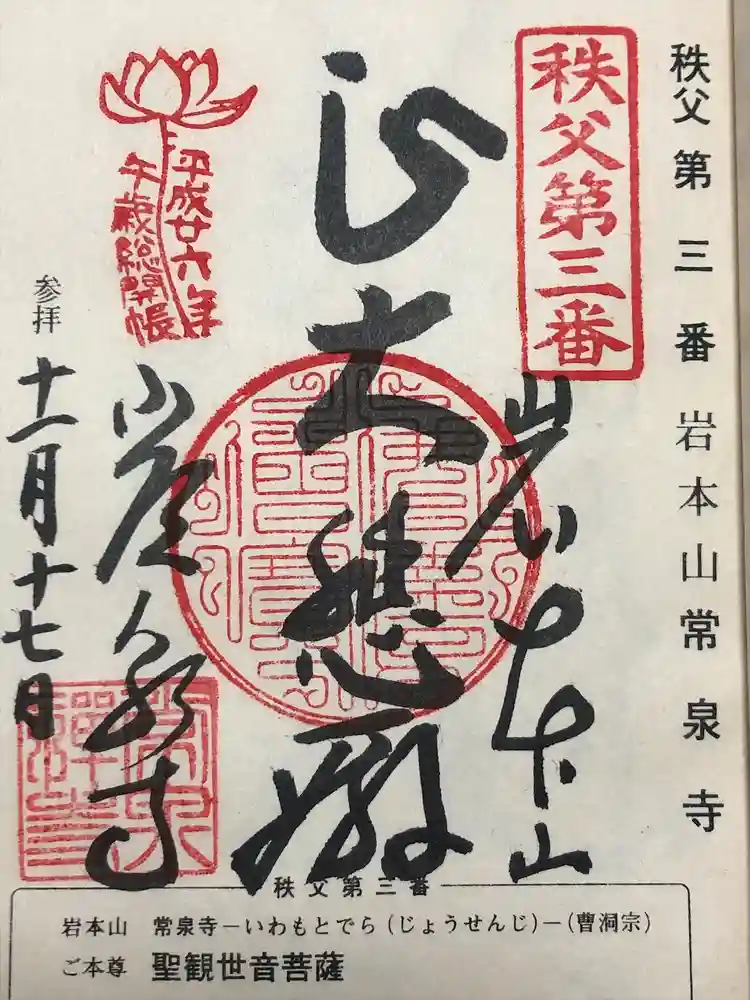 秩父第三番 岩本山常泉寺
秩父第三番
岩本山
大悲殿
常泉寺
平成廿六年
午歳総開帳
参拝
十一月十七日
秩父第三番
岩本山 常泉寺－いわもとでら（じょうせんじ）－（曹洞宗）
ご本尊 聖観世音菩薩